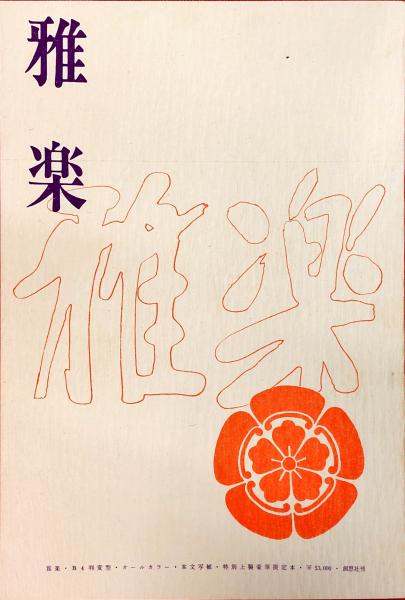 雅楽
雅楽
雅楽・B4判変型・オールカラー・本文写植・特別上製豪華限定本・¥53,000・創思社刊